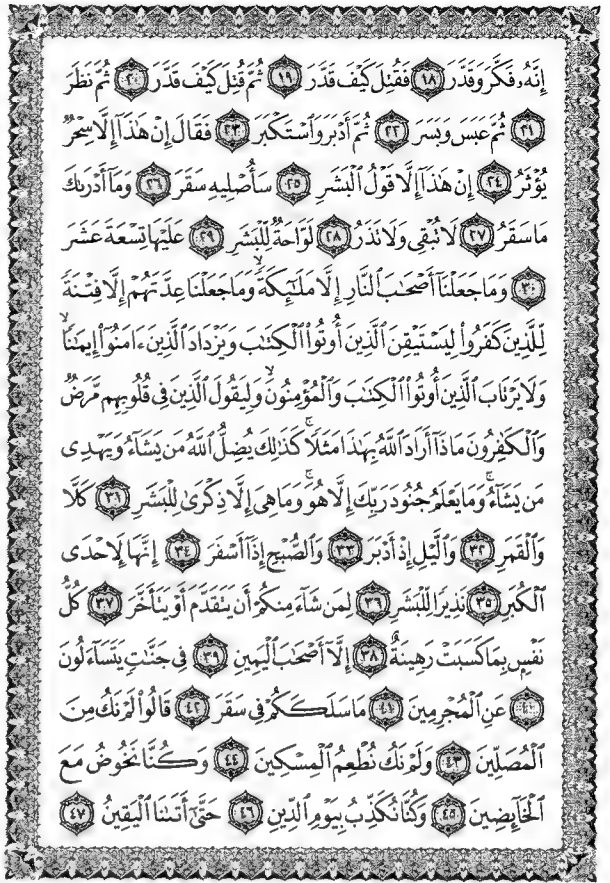 إِنَّهُۥ فَكَّرَ وَقَدَّرَ ١٨ فَقُتِلَ كَيْفَ قَدَّرَ ١٩ ثُمَّ قُتِلَ كَيْفَ قَدَّرَ ٢٠ ثُمَّ نَظَرَ
٢١ ثُمَّ عَبَسَ وَبَسَرَ ٢٢ ثُمَّ أَدْبَرَ وَٱسْتَكْبَرَ ٢٣ فَقَالَ إِنْ هَٰذَآ إِلَّا سِحْرٌ
يُؤْثَرُ ٢٤ إِنْ هَٰذَآ إِلَّا قَوْلُ ٱلْبَشَرِ ٢٥ سَأُصْلِيهِ سَقَرَ ٢٦ وَمَآ أَدْرَىٰكَ
مَا سَقَرُ ٢٧ لَا تُبْقِى وَلَا تَذَرُ ٢٨ لَوَّاحَةٌ لِّلْبَشَرِ ٢٩ عَلَيْهَا تِسْعَةَ عَشَرَ
٣٠ وَمَا جَعَلْنَآ أَصْحَٰبَ ٱلنَّارِ إِلَّا مَلَٰٓئِكَةً ۙ وَمَا جَعَلْنَا عِدَّتَهُمْ إِلَّا فِتْنَةً
لِّلَّذِينَ كَفَرُوا۟ لِيَسْتَيْقِنَ ٱلَّذِينَ أُوتُوا۟ ٱلْكِتَٰبَ وَيَزْدَادَ ٱلَّذِينَ ءَامَنُوٓا۟ إِيمَٰنًا ۙ
وَلَا يَرْتَابَ ٱلَّذِينَ أُوتُوا۟ ٱلْكِتَٰبَ وَٱلْمُؤْمِنُونَ ۙ وَلِيَقُولَ ٱلَّذِينَ فِى قُلُوبِهِم مَّرَضٌ
وَٱلْكَٰفِرُونَ مَاذَآ أَرَادَ ٱللَّهُ بِهَٰذَا مَثَلًا ۚ كَذَٰلِكَ يُضِلُّ ٱللَّهُ مَن يَشَآءُ وَيَهْدِى
مَن يَشَآءُ ۚ وَمَا يَعْلَمُ جُنُودَ رَبِّكَ إِلَّا هُوَ ۚ وَمَا هِىَ إِلَّا ذِكْرَىٰ لِلْبَشَرِ ٣١ كَلَّا
وَٱلْقَمَرِ ٣٢ وَٱلَّيْلِ إِذْ أَدْبَرَ ٣٣ وَٱلصُّبْحِ إِذَآ أَسْفَرَ ٣٤ إِنَّهَا لَإِحْدَى
ٱلْكُبَرِ ٣٥ نَذِيرًا لِّلْبَشَرِ ٣٦ لِمَن شَآءَ مِنكُمْ أَن يَتَقَدَّمَ أَوْ يَتَأَخَّرَ ٣٧ كُلُّ
نَفْسٍۭ بِمَا كَسَبَتْ رَهِينَةٌ ٣٨ إِلَّآ أَصْحَٰبَ ٱلْيَمِينِ ٣٩ فِى جَنَّٰتٍ يَتَسَآءَلُونَ
٤٠ عَنِ ٱلْمُجْرِمِينَ ٤١ مَا سَلَكَكُمْ فِى سَقَرَ ٤٢ قَالُوا۟ لَمْ نَكُ مِنَ
ٱلْمُصَلِّينَ ٤٣ وَلَمْ نَكُ نُطْعِمُ ٱلْمِسْكِينَ ٤٤ وَكُنَّا نَخُوضُ مَعَ
ٱلْخَآئِضِينَ ٤٥ وَكُنَّا نُكَذِّبُ بِيَوْمِ ٱلدِّينِ ٤٦ حَتَّىٰٓ أَتَىٰنَا ٱلْيَقِينُ ٤٧